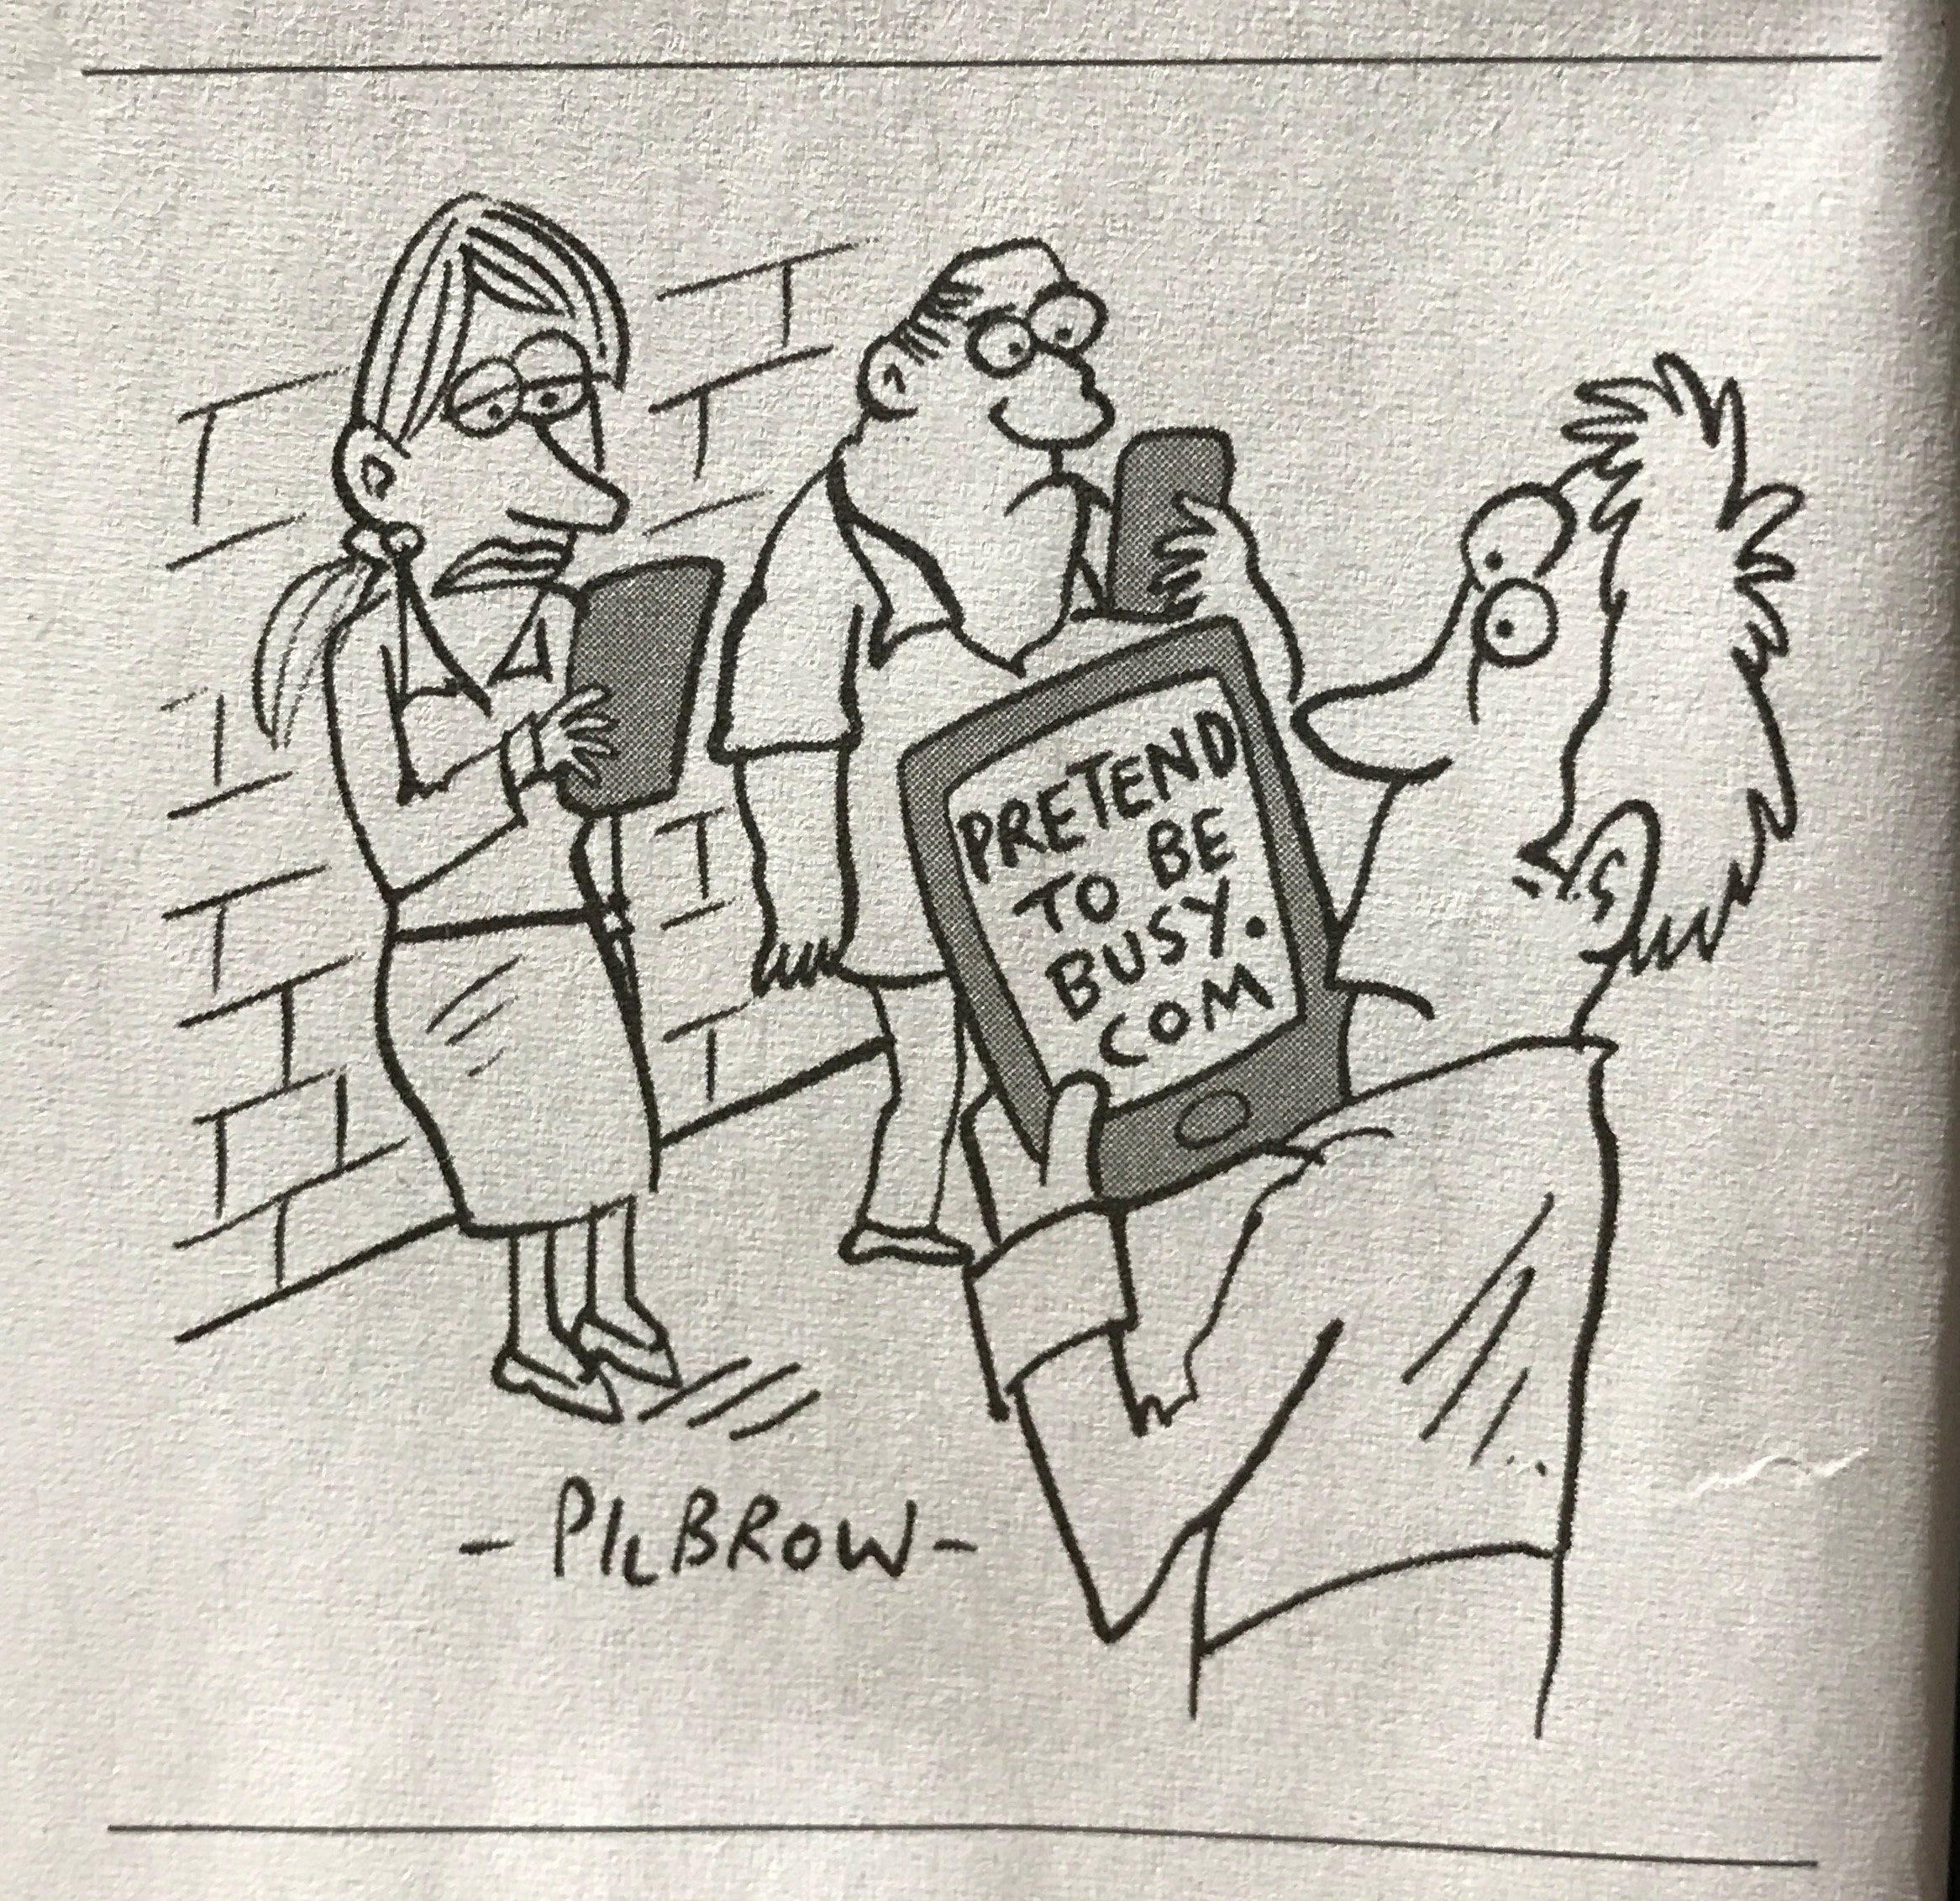 PRETEND
TO BE
BUSY.
COM
- PILBROW -